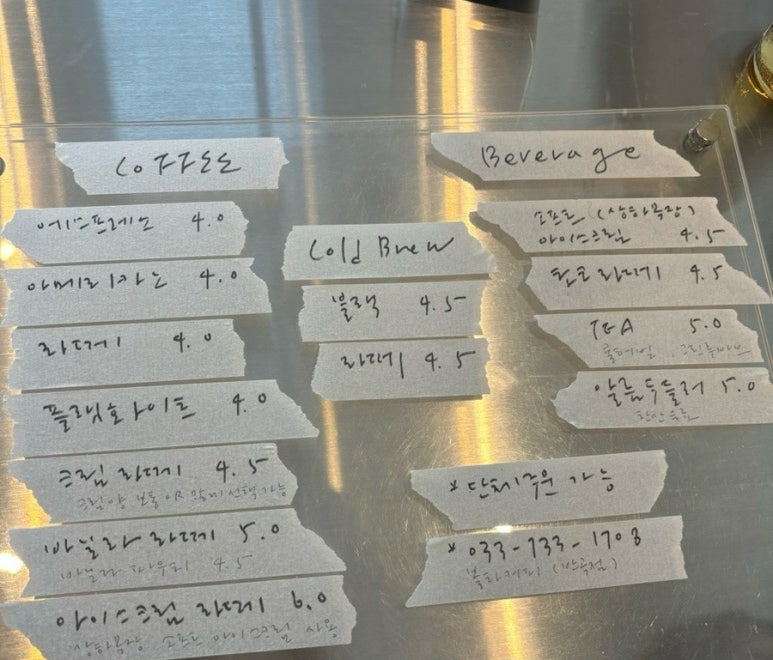 COFFEE
에스프레소 4.0
아메리카노 4.0
라떼 4.0
플랫화이트 4.0
크림 라떼 4.5
크림양 보통 OR 많이 선택 가능
바닐라 라떼 5.0
바닐라 파우더 4.5
아이스크림 라떼 6.0
상하목장 소프트 아이스크림 사용
Cold Brew
블랙 4.5
라떼 4.5
Beverage
소프트 (상하목장)
아이스크림 4.5
초코라떼 4.5
TEA 5.0
얼그레이
알름두들러 5.0
탄산음료
* 단체주문 가능
* 033-733-1703